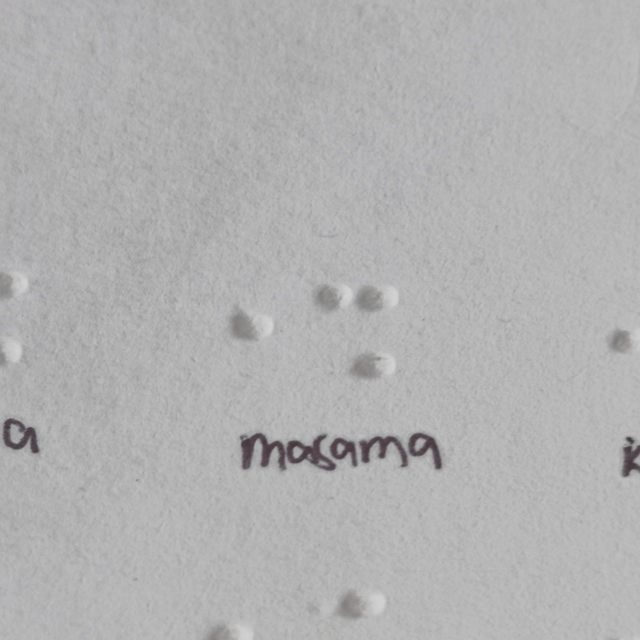 a masama